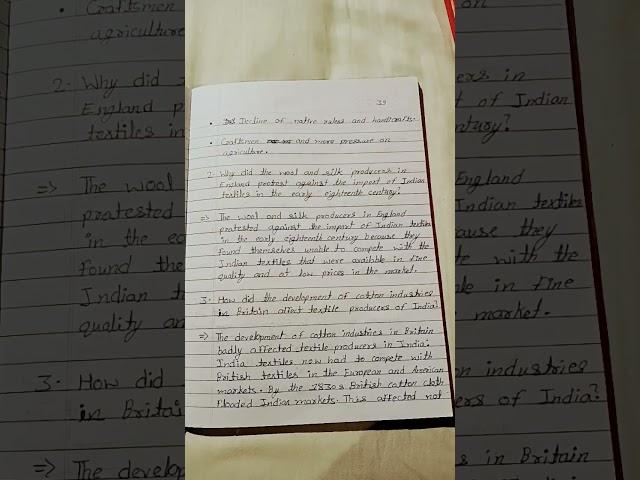 39
• Decline of native rulers and handicrafts.
• Craftsmen and more pressure on
agriculture.
2. Why did the wool and silk producers in
England protest against the import of Indian
textiles in the early eighteenth century?
⇒ The wool and silk producers in England
protested against the import of Indian textiles
in the early eighteenth century because they
found themselves unable to compete with the
Indian textiles that were available in fine
quality and at low prices in the market.
3. How did the development of cotton industries
in Britain affect textile producers of India?
⇒ The development of cotton industries in Britain
badly affected textile producers in India.
India textiles now had to compete with
British textiles in the European and American
markets. By the 1830s British cotton cloth
flooded Indian markets. This affected not